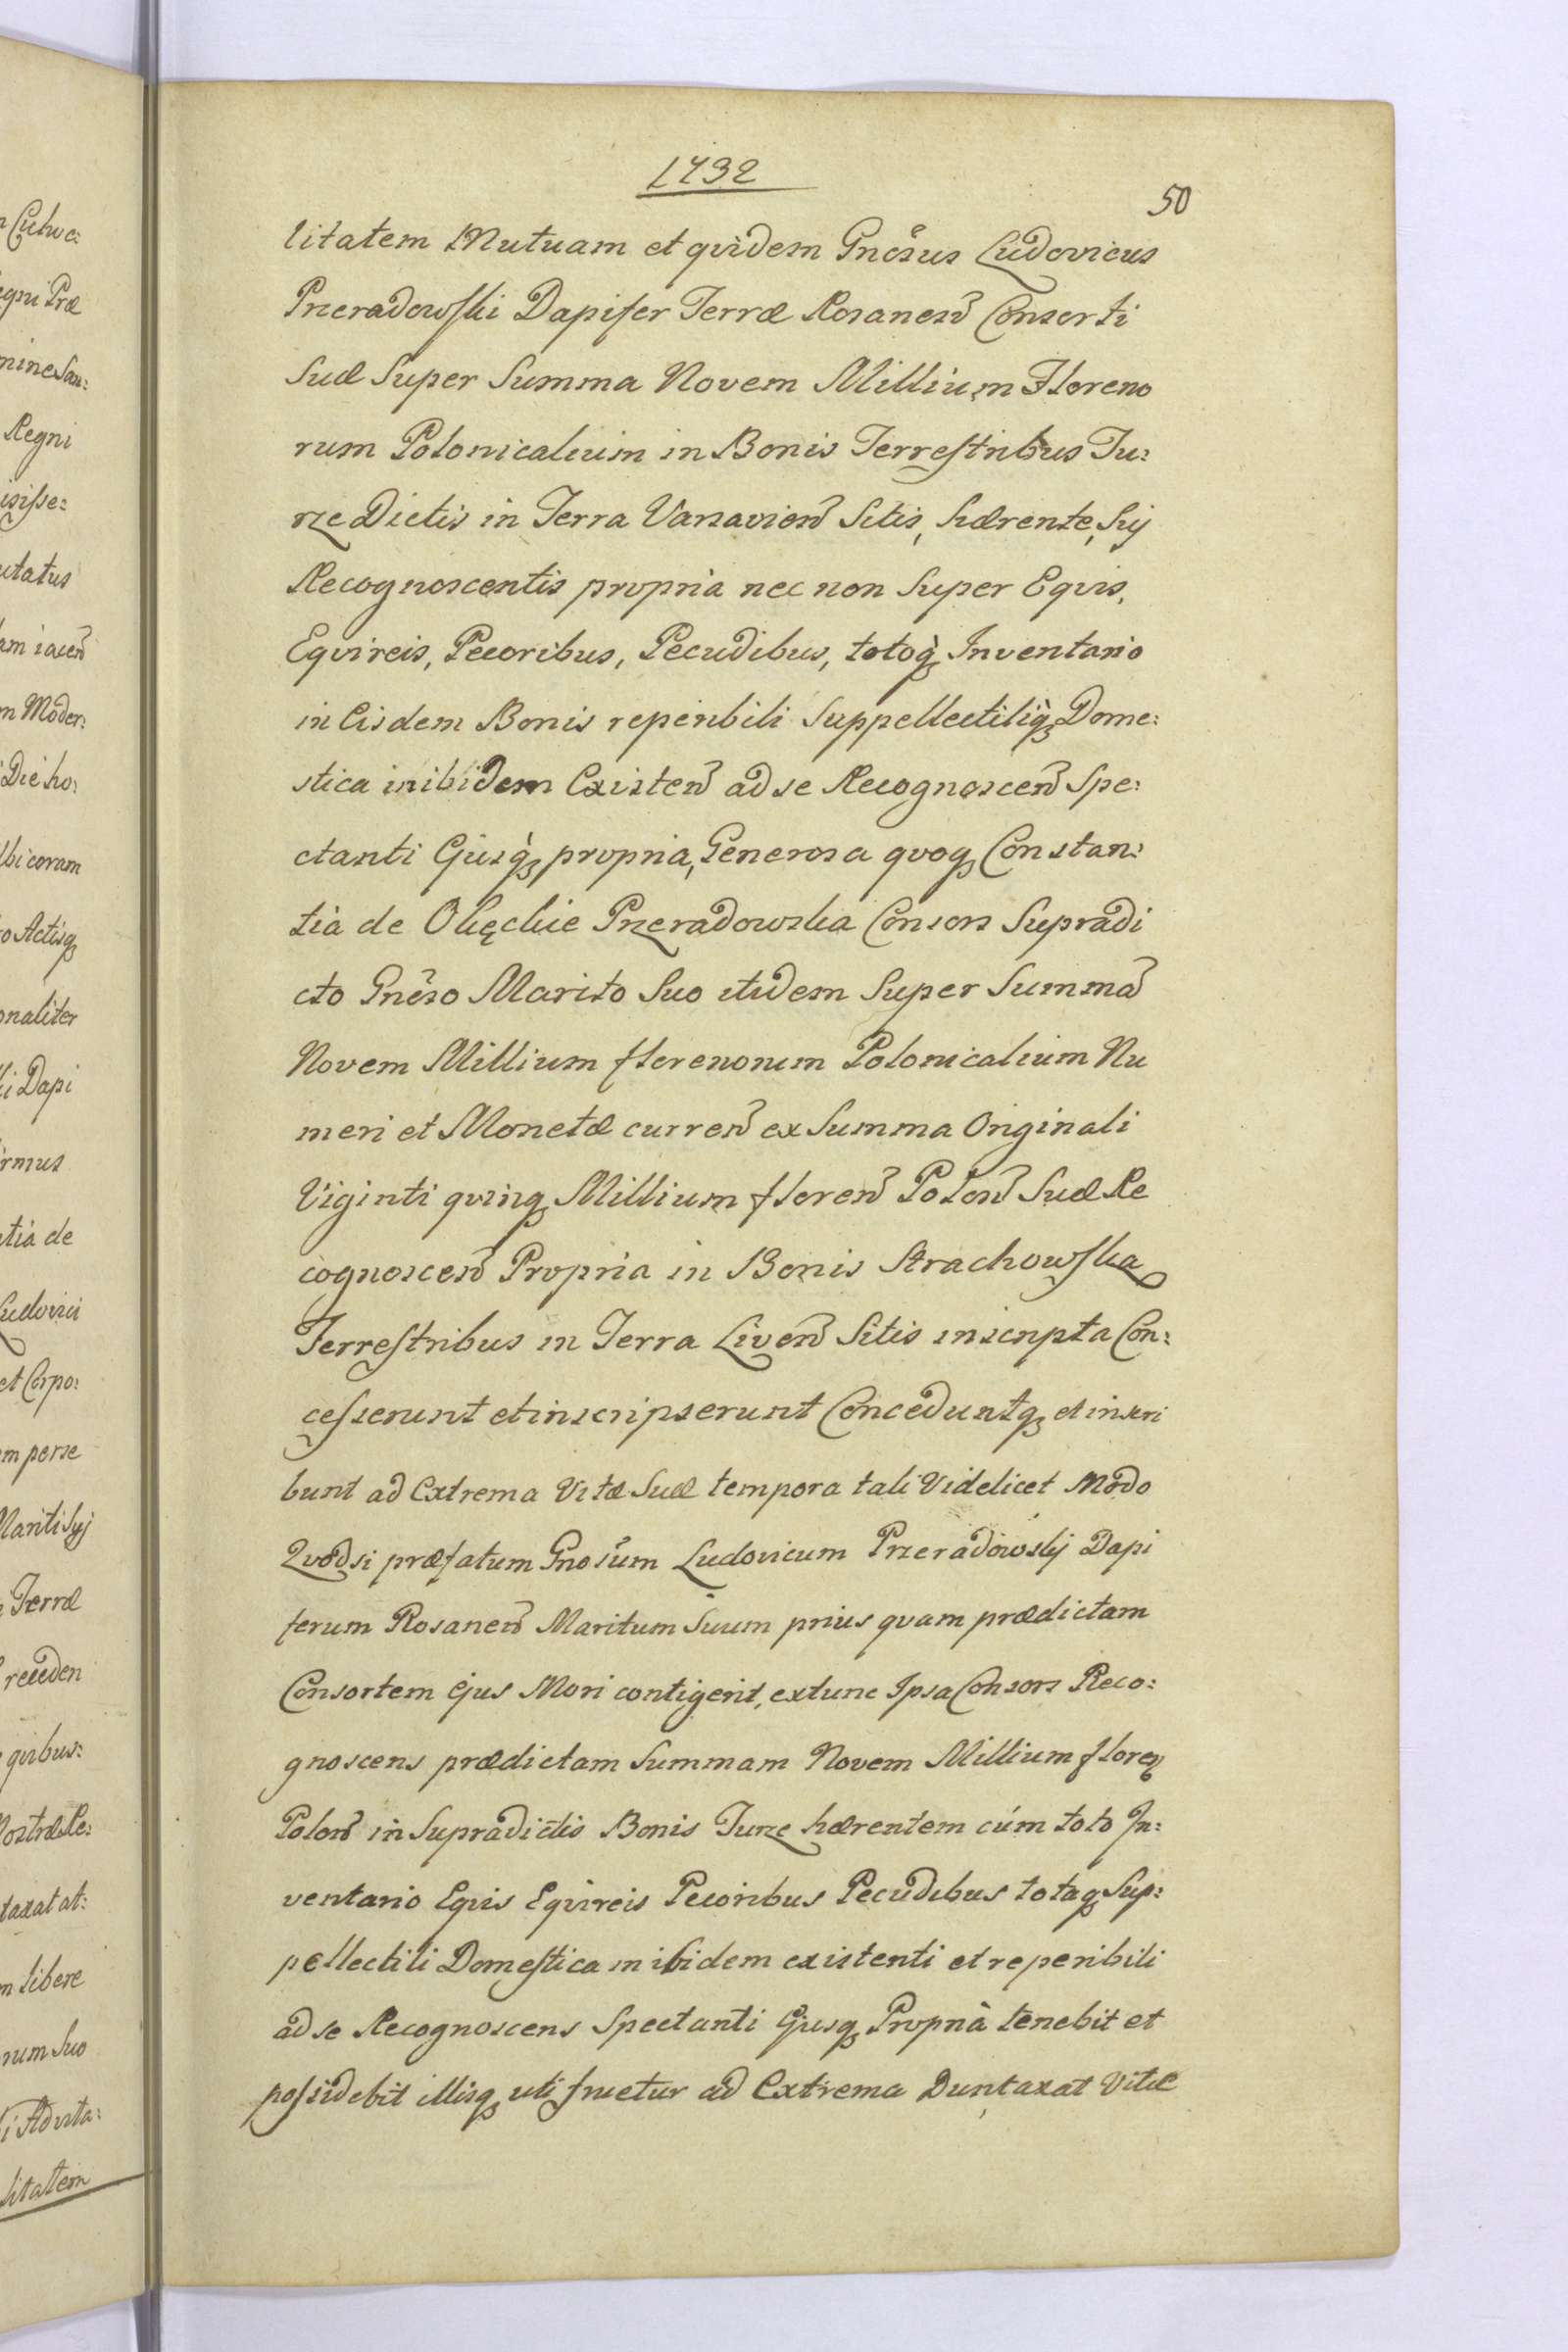 1732
50
litatem Mutuam et quidem Gnosus Ludovicus
Przeradowski Dapifer Terræ Rosanen Consorti
Suæ Super Summa Novem Millium Floreno
rum Polonicalium in Bonis Terrestribus Tu:
rze Dictis in Terra Varsavien Sitis, hærente, Sui
Recognoscentis propria nec non Super Equis,
Equireis, Pecoribus, Pecudibus, totoq₃ Inventario
in Eisdem Bonis reperibili Suppellectiliq₃ Dome:
stica inibidem Existen ad se Recognoscen Spe:
ctanti Ejusq₃ propria, Generosa quoq₃ Constan:
tia de Okęckie Przeradowska Consors Supradi
cto Gnoso Marito Suo itidem Super Summa
Novem Millium florenorum Polonicalium Nu
meri et Monetæ curren ex Summa Originali
Viginti quinq₃ Millium floren Polon Suæ Re
cognoscen Propria in Bonis Strachowska
Terrestribus in Terra Liven Sitis inscripta Con:
cesserunt et inscripserunt Conceduntq₃ et inscri
bunt ad Extrema Vitæ Suæ tempora tali Videlicet Modo
Quodsi præfatum Gnosum Ludovicum Przeradowskij Dapi
ferum Rosanen Maritum Suum prius quam prædictam
Consortem Ejus Mori contigerit, extunc Ipsa Consors Reco:
gnoscens prædictam Summam Novem Millium floren
Polon in Supradictis Bonis Turze hærentem cúm toto In:
ventario Equis Equireis Pecoribus Pecudibus totaq₃ Sup:
pellectili Domestica inibidem existenti et reperibili
ad se Recognoscens Spectanti Ejusq₃ Propria tenebit et
possidebit illisq₃ uti fruetur ad Extrema Duntaxat Vitæ